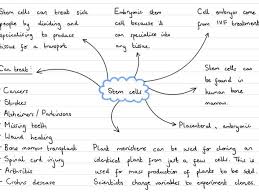 Stem cells can treat sick
people by dividing and
specialising to produce
tissue for a transport
Embryonic stem
cell because it
can specialize into
any tissue.
Cell embryos come
from IVF treatment
Can treat
- Cancers
- Strokes
- Alzheimers / Parkinsons
- Missing teeth
- Wound healing
- Bone marrow transplant
- Spinal cord injury
- Arthritis
- Crohns desease
Stem cells
Stem cells can
be found in
human bone
marrow.
Placenteral, embryonic
Plant meristems can be used for cloning an
identical plant from just a few cells. This is
used for mass production of plants to be sold.
Scientists change variables to experiment clones.